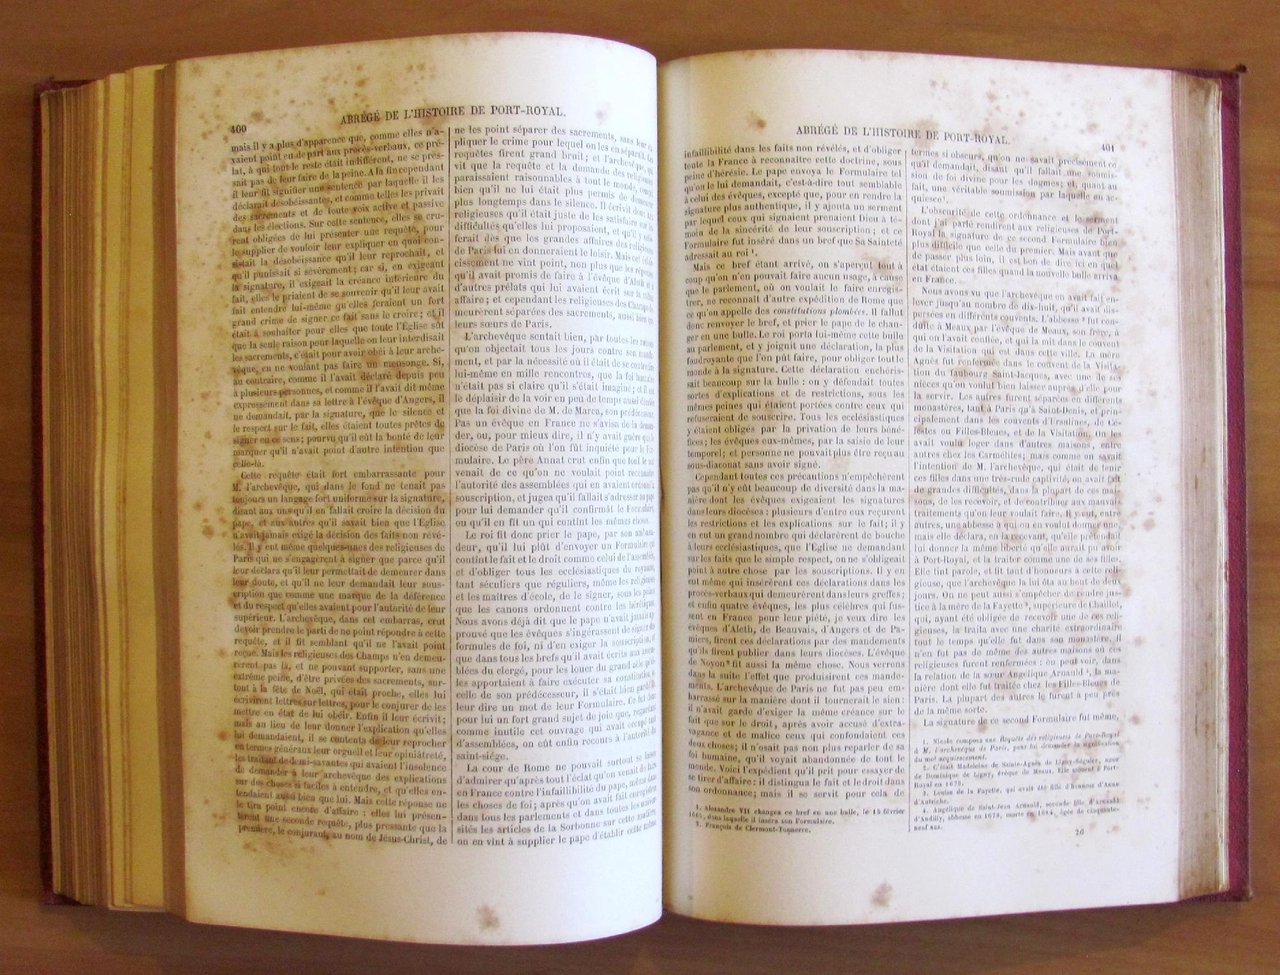 400
ABRÉGÉ DE L'HISTOIRE DE PORT-ROYAL.
mais il y a plus d'apparence que, comme elles n'a-
vaient point eu de part aux procès-verbaux, ce pré-
lat, à qui tout le reste était indifférent, ne se pres-
sait pas de leur faire de la peine. A la fin cependant
il leur fit signifier une sentence par laquelle il les
déclarait désobéissantes, et comme telles les privait
des sacrements et de toute voix active et passive
dans les élections. Sur cette sentence, elles se cru-
rent obligées de lui présenter une requête, pour
le supplier de vouloir leur expliquer en quoi con-
sistait la désobéissance qu'il leur reprochait, et
qu'il punissait si sévèrement; car si, en exigeant
la signature, il exigeait la créance intérieure du
fait, elles le priaient de se souvenir qu'il leur avait
fait entendre lui-même qu'elles feraient un fort
grand crime de signer ce fait sans le croire; et il
était à souhaiter pour elles que toute l'Église sût
que la seule raison pour laquelle on leur interdisait
les sacrements, c'était pour avoir obéi à leur arche-
vêque, en ne voulant pas faire un mensonge. Si,
au contraire, comme il l'avait déclaré depuis peu
à plusieurs personnes, et comme il l'avait dit même
expressément dans sa lettre à l'évêque d'Angers, il
ne demandait, par la signature, que le silence et
le respect sur le fait, elles étaient toutes prêtes de
signer en ce sens; pourvu qu'il eût la bonté de leur
marquer qu'il n'avait point d'autre intention que
celle-là.
Cette requête était fort embarrassante pour
M. l'archevêque, qui dans le fond ne tenait pas
toujours un langage fort uniforme sur la signature,
disant aux uns qu'il en fallait croire la décision du
pape, et aux autres qu'il savait bien que l'Église
n'avait jamais exigé la décision des faits non révé-
lés. Il y eut même quelques-unes des religieuses de
Paris qui ne s'engagèrent à signer que parce qu'il
leur déclara qu'il leur permettait de demeurer dans
leur doute, et qu'il ne leur demandait leur sous-
cription que comme une marque de la déférence
et du respect qu'elles avaient pour l'autorité de leur
supérieur. L'archevêque, dans cet embarras, crut
devoir prendre le parti de ne point répondre à cette
requête, et il fit semblant qu'il ne l'avait point
reçue. Mais les religieuses des Champs n'en demeu-
rèrent pas là, et ne pouvant supporter, sans une
extrême peine, d'être privées des sacrements, sur-
tout à la fête de Noël, qui était proche, elles lui
écrivirent lettres sur lettres, pour le conjurer de les
mettre en état de lui obéir. Enfin il leur écrivit;
mais au lieu de leur donner l'explication qu'elles
lui demandaient, il se contenta de leur reprocher
en termes généraux leur orgueil et leur opiniâtreté,
les traitant de demi-savantes qui avaient l'insolence
de demander à leur archevêque des explications
sur des choses si faciles à entendre, et qu'elles en-
tendaient aussi bien que lui. Mais cette réponse ne
le tira point encore d'affaire : elles lui présen-
tèrent une seconde requête, plus pressante que la
première, le conjurant, au nom de Jésus-Christ, de
ne les point séparer des sacrements, sans leur ex-
pliquer le crime pour lequel on les en séparait. Ces
requêtes firent grand bruit; et l'archevêque,
vit que la requête et la demande des religieuses
paraissaient raisonnables à tout le monde,
bien qu'il ne lui était plus permis de demeurer
plus longtemps dans le silence. Il écrivit donc aux
religieuses qu'il était juste de les satisfaire sur les
difficultés qu'elles lui proposaient, et qu'il y satis-
ferait dès que les grandes affaires des religieuses
de Paris lui en donneraient le loisir. Mais cet éclair-
cissement ne vint point, non plus que les réponses
qu'il avait promis de faire à l'évêque d'Aleth et à
d'autres prélats qui lui avaient écrit sur la même
affaire; et cependant les religieuses des Champs de-
meurèrent séparées des sacrements, aussi bien que
leurs sœurs de Paris.
L'archevêque sentait bien, par toutes les raisons
qu'on objectait tous les jours contre son mande-
ment, et par la nécessité où il était de se contredire
lui-même en mille rencontres, que la foi humaine
n'était pas si claire qu'il s'était imaginé; et il eut
le déplaisir de la voir en peu de temps aussi décriée
que la foi divine de M. de Marca, son prédécesseur.
Pas un évêque en France ne s'avisa de la deman-
der, ou, pour mieux dire, il n'y avait guère que le
diocèse de Paris où l'on fût inquiété pour le For-
mulaire. Le père Annat crut enfin que tout le mal
venait de ce qu'on ne voulait point reconnaître
l'autorité des assemblées qui en avaient ordonné la
souscription, et jugea qu'il fallait s'adresser au pape
pour lui demander qu'il confirmât le Formulaire,
ou qu'il en fît un qui contînt les mêmes choses.
Le roi fit donc prier le pape, par son ambassa-
deur, qu'il lui plût d'envoyer un Formulaire qui
contînt le fait et le droit comme celui de l'assemblée,
et d'obliger tous les ecclésiastiques du royaume,
tant séculiers que réguliers, même les religieuses
et les maîtres d'école, de le signer, sous les peines
que les canons ordonnent contre les hérétiques.
Nous avons déjà dit que le pape n'avait jamais ap-
prouvé que les évêques s'ingérassent de signature des
formules de foi, ni d'en exiger la souscription, et
que dans tous les brefs qu'il avait écrits aux assem-
blées du clergé, pour les louer du grand zèle qu'ils
les apportaient à faire exécuter sa constitution et
celle de son prédécesseur, il s'était bien gardé de
leur dire un mot de leur Formulaire. Ce fut donc
pour lui un fort grand sujet de joie que, regardant
comme inutile cet ouvrage qui avait occupé tant
d'assemblées, on eût enfin recours à l'autorité du
saint-siége.
La cour de Rome ne pouvait surtout se lasser
d'admirer qu'après tout l'éclat qu'on venait de faire
en France contre l'infaillibilité du pape, même dans
les choses de foi; après qu'on avait fait enregistrer
dans tous les parlements et dans toutes les univer-
sités les articles de la Sorbonne sur cette matière,
on en vint à supplier le pape d'établir cette même
ABRÉGÉ DE L'HISTOIRE DE PORT-ROYAL.
401
infaillibilité dans les faits non révélés, et d'obliger
toute la France à reconnaître cette doctrine, sous
peine d'hérésie. Le pape envoya le Formulaire tel
qu'on le lui demandait, c'est-à-dire tout semblable
à celui des évêques, excepté que, pour en rendre la
signature plus authentique, il y ajouta un serment
par lequel ceux qui signaient prenaient Dieu à té-
moin de la sincérité de leur souscription; et ce
Formulaire fut inséré dans un bref que Sa Sainteté
adressait au roi ¹.
Mais ce bref étant arrivé, on s'aperçut tout à
coup qu'on n'en pouvait faire aucun usage, à cause
que le parlement, où on voulait le faire enregis-
trer, ne reconnaît d'autre expédition de Rome que
ce qu'on appelle des constitutions plombées. Il fallut
donc renvoyer le bref, et prier le pape de le chan-
ger en une bulle. Le roi porta lui-même cette bulle
au parlement, et y joignit une déclaration, la plus
foudroyante que l'on pût faire, pour obliger tout le
monde à la signature. Cette déclaration enchéris-
sait beaucoup sur la bulle : on y défendait toutes
sortes d'explications et de restrictions, sous les
mêmes peines qui étaient portées contre ceux qui
refuseraient de souscrire. Tous les ecclésiastiques
y étaient obligés par la privation de leurs béné-
fices; les évêques eux-mêmes, par la saisie de leur
temporel; et personne ne pouvait plus être reçu au
sous-diaconat sans avoir signé.
Cependant toutes ces précautions n'empêchèrent
pas qu'il n'y eût beaucoup de diversité dans la ma-
nière dont les évêques exigeaient les signatures
dans leurs diocèses : plusieurs d'entre eux reçurent
les restrictions et les explications sur le fait; il y
en eut un grand nombre qui déclarèrent de bouche
à leurs ecclésiastiques, que l'Église ne demandant
sur les faits que le simple respect, on ne s'obligeait
point à autre chose par les souscriptions. Il y en
eut même qui insérèrent ces déclarations dans les
procès-verbaux qui demeurèrent dans leurs greffes;
et enfin quatre évêques, les plus célèbres qui fus-
sent en France pour leur piété, je veux dire les
évêques d'Aleth, de Beauvais, d'Angers et de Pa-
miers, firent ces déclarations par des mandements
qu'ils firent publier dans leurs diocèses. L'évêque
de Noyon ² fit aussi la même chose. Nous verrons
dans la suite l'effet que produisirent ces mande-
ments. L'archevêque de Paris ne fut pas peu em-
barrassé sur la manière dont il tournerait le sien :
il n'avait garde d'exiger la même créance sur le
fait que sur le droit, après avoir accusé d'extra-
vagance et de malice ceux qui confondaient ces
deux choses; il n'osait pas non plus reparler de sa
foi humaine, qu'il voyait abandonnée de tout le
monde. Voici l'expédient qu'il prit pour essayer de
se tirer d'affaire : il distingua le fait et le droit dans
son ordonnance; mais il se servit pour cela de
1. Alexandre VII changea ce bref en une bulle, le 15 février
1665, dans laquelle il inséra son Formulaire.
2. François de Clermont-Tonnerre.
termes si obscurs, qu'on ne savait précisément ce
qu'il demandait, disant qu'il fallait une soumis-
sion de foi divine pour les dogmes; et, quant au
fait, une véritable soumission par laquelle on ac-
quiesce ¹.
L'obscurité de cette ordonnance et le serment
dont j'ai parlé rendirent aux religieuses de Port-
Royal la signature de ce second Formulaire bien
plus difficile que celle du premier. Mais avant que
de passer plus loin, il est bon de dire ici en quel
état étaient ces filles quand la nouvelle bulle arriva
en France.
Nous avons vu que l'archevêque en avait fait en-
lever jusqu'au nombre de dix-huit, qu'il avait dis-
persées en différents couvents. L'abbesse ² fut con-
duite à Meaux par l'évêque de Meaux, son frère, à
qui on l'avait confiée, et qui la mit dans le couvent
de la Visitation qui est dans cette ville. La mère
Agnès fut confinée dans le couvent de la Visita-
tion du faubourg Saint-Jacques, avec une de ses
nièces qu'on voulut bien laisser auprès d'elle pour
la servir. Les autres furent séparées en différents
monastères, tant à Paris qu'à Saint-Denis, et prin-
cipalement dans les couvents d'Ursulines, de Cé-
lestes ou Filles-Bleues, et de la Visitation. On les
avait voulu loger dans d'autres maisons, entre
autres chez les Carmélites; mais comme on savait
l'intention de M. l'archevêque, qui était de tenir
ces filles dans une très-rude captivité, on avait fait
de grandes difficultés, dans la plupart de ces mai-
sons, de les recevoir, et de contribuer aux mauvais
traitements qu'on leur voulait faire. Il y eut, entre
autres, une abbesse à qui on en voulut donner une,
mais elle déclara, en la recevant, qu'elle prétendait
lui donner la même liberté qu'elle aurait pu avoir
à Port-Royal, et la traiter comme une de ses filles.
Elle tint parole, et fit tant d'honneurs à cette reli-
gieuse, que l'archevêque la lui ôta au bout de deux
jours. On ne peut aussi s'empêcher de rendre jus-
tice à la mère de la Fayette ³, supérieure de Chaillot,
qui, ayant été obligée de recevoir une de ces reli-
gieuses, la traita avec une charité extraordinaire
tout le temps qu'elle fut dans son monastère. Il
n'en fut pas de même des autres maisons où ces
religieuses furent renfermées : on peut voir, dans
la relation de la sœur Angélique Arnauld ⁴, la ma-
nière dont elle fut traitée chez les Filles-Bleues de
Paris. La plupart des autres le furent à peu près
de la même sorte.
La signature de ce second Formulaire fut même,
1. Nicole composa une Requête des religieuses de Port-Royal
à M. l'archevêque de Paris, pour lui demander la signification
du mot acquiescement.
2. C'était Madeleine de Sainte-Agnès de Ligny-Séguier, sœur
de Dominique de Ligny, évêque de Meaux. Elle mourut à Port-
Royal en 1675.
3. Louise de la Fayette, qui avait été fille d'honneur d'Anne
d'Autriche.
4. Angélique de Saint-Jean Arnauld, seconde fille d'Arnauld
d'Andilly, abbesse en 1678, morte en 1684, âgée de cinquante-
neuf ans.
26